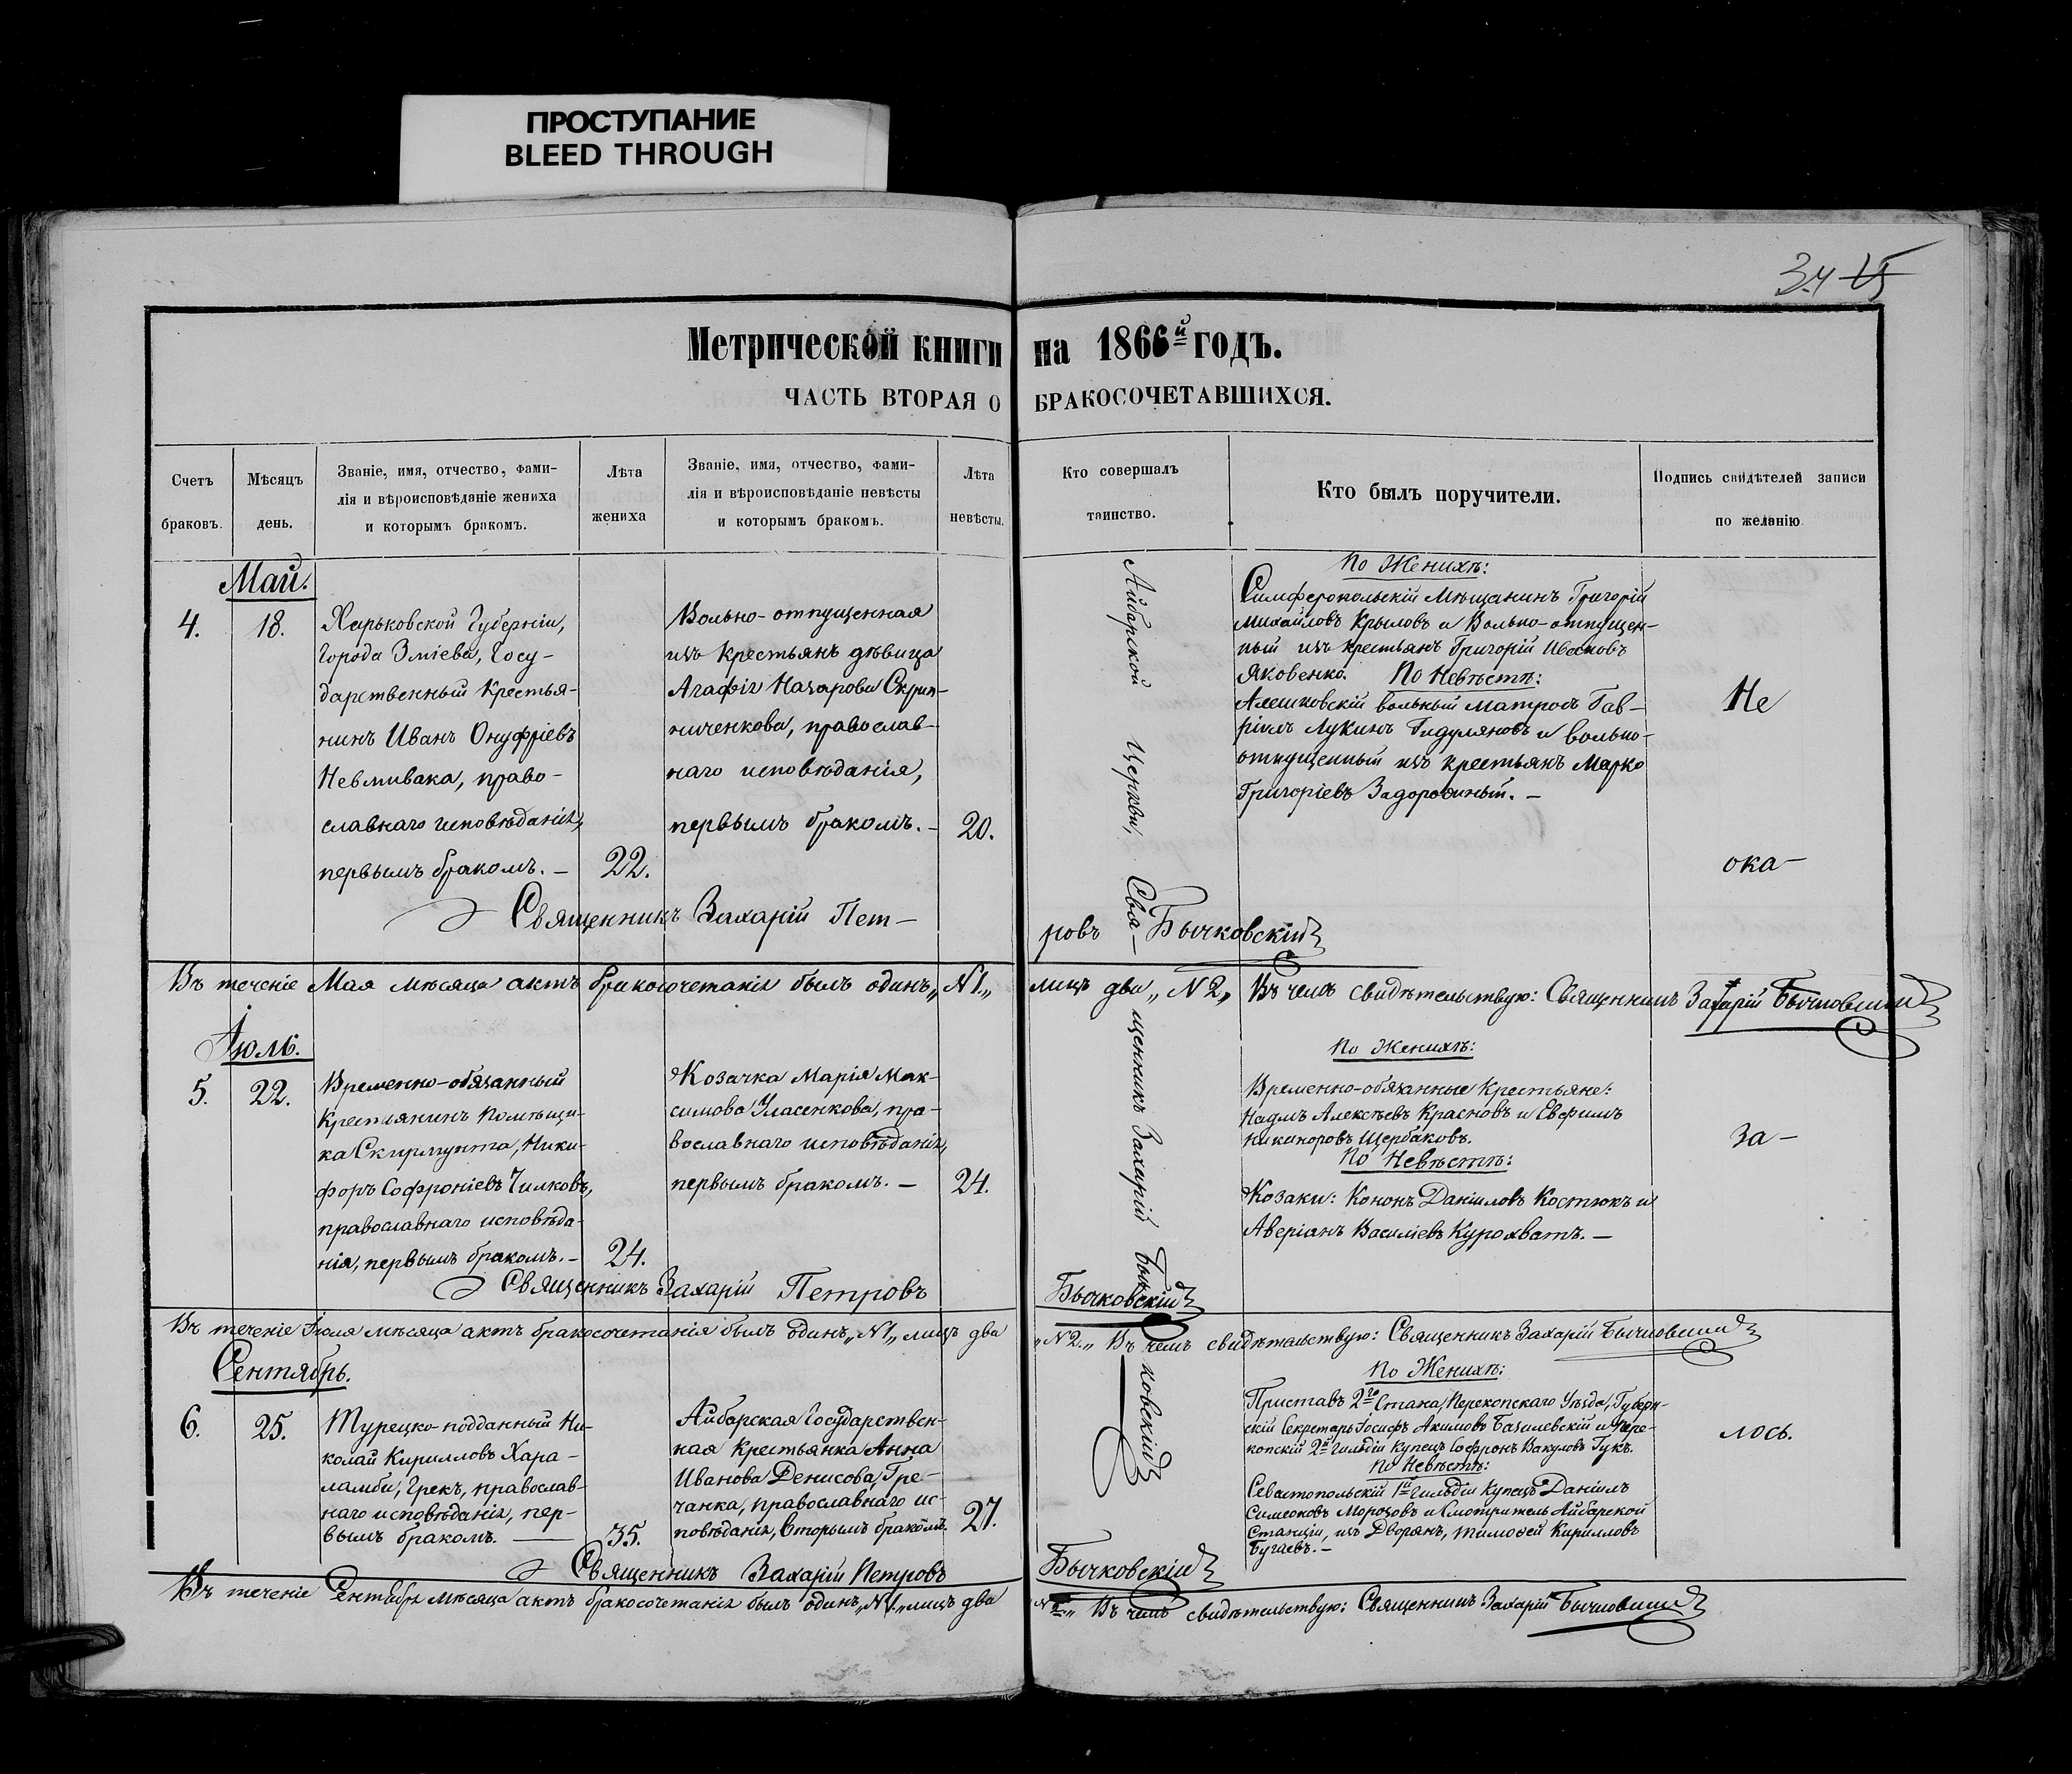 ПРОСТУПАНИЕ
BLEED THROUGH
34 15
Метрической книги на 1866й годъ.
ЧАСТЬ ВТОРАЯ О БРАКОСОЧЕТАВШИХСЯ.
Счетъ браковъ.
Мѣсяцъ день.
Званіе, имя, отчество, фами-
лія и вѣроисповѣданіе жениха
и которымъ бракомъ.
Лѣта
жениха
Званіе, имя, отчество, фами-
лія и вѣроисповѣданіе невѣсты
и которымъ бракомъ.
Лѣта
невѣсты.
Кто совершалъ
таинство.
Кто былъ поручители.
Подпись свидѣтелей записи
по желанію
Май.
4.
18.
Харьковской Губерніи,
города Зміева, Госу-
дарственный крестья-
нинъ Иванъ Онуфріевъ
Невмивака, право-
славнаго исповѣданія,
первымъ бракомъ. —
22.
Вольно-отпущенная
изъ крестьянъ дѣвица
Агафія Назарова Скрип-
ниченкова, православ-
наго исповѣданія,
первымъ бракомъ. —
20.
Айбарской Церкви, Свя-
щенникъ Захарій Быч-
ковскій
По Женихѣ:
Симферопольскій Мѣщанинъ Григорій
Михайловъ Крыловъ и Вольно-отпущен-
ный изъ крестьянъ Григорій Ивановъ
Яковенко. По Невѣстѣ:
Алешковскій вольный матросъ Гав-
ріилъ Лукинъ Гидуляновъ и вольно-
отпущенный изъ крестьянъ Марко
Григоріевъ Задорожный. —
Не
ока-
за-
лось.
Священникъ Захарій Пет-
ровъ Бычковскій
Въ теченіе Мая мѣсяца актъ бракосочетанія былъ одинъ „N1„ лицъ два „N2„ Въ чемъ свидѣтельствую: Священникъ Захарій Бычковскій
Іюль.
5.
22.
Временно-обязанный
Крестьянинъ Помѣщи-
ка Скирмунта, Ники-
форъ Софроніевъ Чилковъ,
православнаго исповѣда-
нія, первымъ бракомъ. —
24.
Козачка Марія Мак-
симова Уласенкова, пра-
вославнаго исповѣданія,
первымъ бракомъ. —
24.
По Женихѣ:
Временно-обязанные Крестьяне:
Алексѣевъ Красновъ и Евфимъ
Никаноровъ Щербаковъ.
По Невѣстѣ:
Козаки: Кононъ Даниловъ Костюкъ и
Аверіанъ Василіевъ Курохватъ. —
Священникъ Захарій Петровъ
Бычковскій
Въ теченіе Іюля мѣсяца актъ бракосочетанія былъ одинъ „N1„ лицъ два „N2.„ Въ чемъ свидѣтельствую: Священникъ Захарій Бычковскій
Сентябрь.
6.
25.
Турецко-подданный Ни-
колай Кирилловъ Хара-
ламби, Грекъ, православ-
наго исповѣданія, пер-
вымъ бракомъ. —
35.
Айбарская Государствен-
ная крестьянка Анна
Иванова Денисова, Гре-
чанка, православнаго ис-
повѣданія, вторымъ бракомъ.
27.
По Женихѣ:
Приставъ 2го Стана, Перекопскаго Уѣзда, Губерн-
скій Секретарь Іосифъ Акимовъ Базилевскій и Пере-
копскій 2й Гильдіи Купецъ Софронъ Вакуловъ Гукъ.
По Невѣстѣ:
Севастопольскій 1й Гильдіи Купецъ Даніилъ
Симеоновъ Морозовъ и Смотритель Айбарской
Станціи, изъ Дворянъ, Тимофей Кирилловъ
Бугаевъ. —
Священникъ Захарій Петровъ
Бычковскій
Въ теченіе Сентября мѣсяца актъ бракосочетанія былъ одинъ „N1„ лицъ два „N2„ Въ чемъ свидѣтельствую: Священникъ Захарій Бычковскій